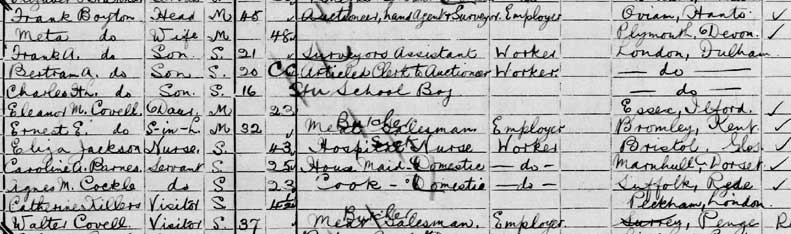 Frank Boyton Head M 45 Auctioneer, Land Agent & Surveyor Employer Hants ✓
Meta do Wife M 48 Plymouth, Devon. ✓
Frank A. do Son S. 21 Surveyors Assistant Worker London, Dulham
Bertram A. do Son S. 20 Articled Clerk to Auctioneer Worker. — do —
Charles do Son. S. 16 School Boy — do — ✓
Eleanor M. Covell Daur, M 23 Essex, Ilford. ✓
Ernest E. do S-in-L. M 32 Butcher Meat Salesman Employer Bromley, Kent. ✓
Eliza Jackson Nurse. S. 43 Hospital Nurse Sick Worker Bristol, Glos ✓
Caroline A. Barnes Servant S 25 House Maid Domestic — do — Marnhull Dorset ✓
Agnes M. Cockle do S 23 Cook — Domestic — do — Suffolk, Ryde ✓
Catherine Visitor S Peckham, London.
Walter Covell. Visitor S 37 Butcher Meat Salesman. Employer. Surrey, Penge R